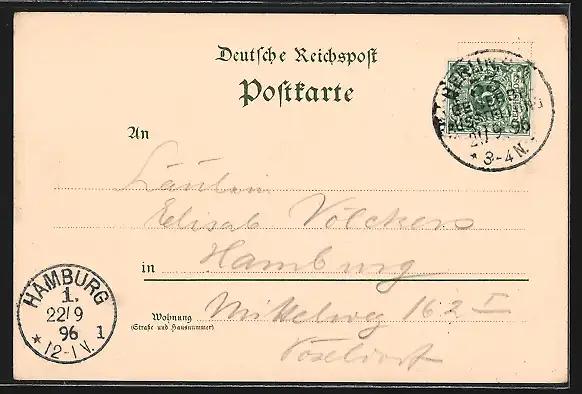 Deutsche Reichspost
Postkarte
BERLIN S
GEWERBE
AUSSTELLUNG
21/9 96
* 3-4 N.
An
Fräulein
Elisab. Völckers
in Hamburg
Wohnung Mittelweg 162 I
(Straße und Hausnummer)
Pöseldorf
HAMBURG
1.
22/9
96 1
* 12-1 V.